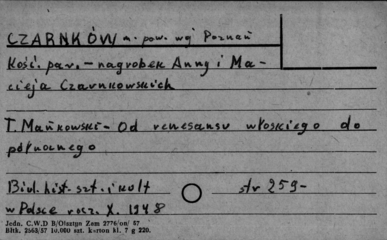 CZARNKÓW m. pow. wj Poznań
Kość. par. – nagrobek Anny i Ma-
cieja Czarnkowskich
T. Mańkowski – Od renesansu włoskiego do
północnego
Biul. hist. szt. i kult str 259–
w Polsce rocz. X. 1948
Jedn. C.W.D B/Olsztyn Zam 2776/on/ 57
Bltk. 2563/57 10.000 szt. karton kl. 7 g 220.